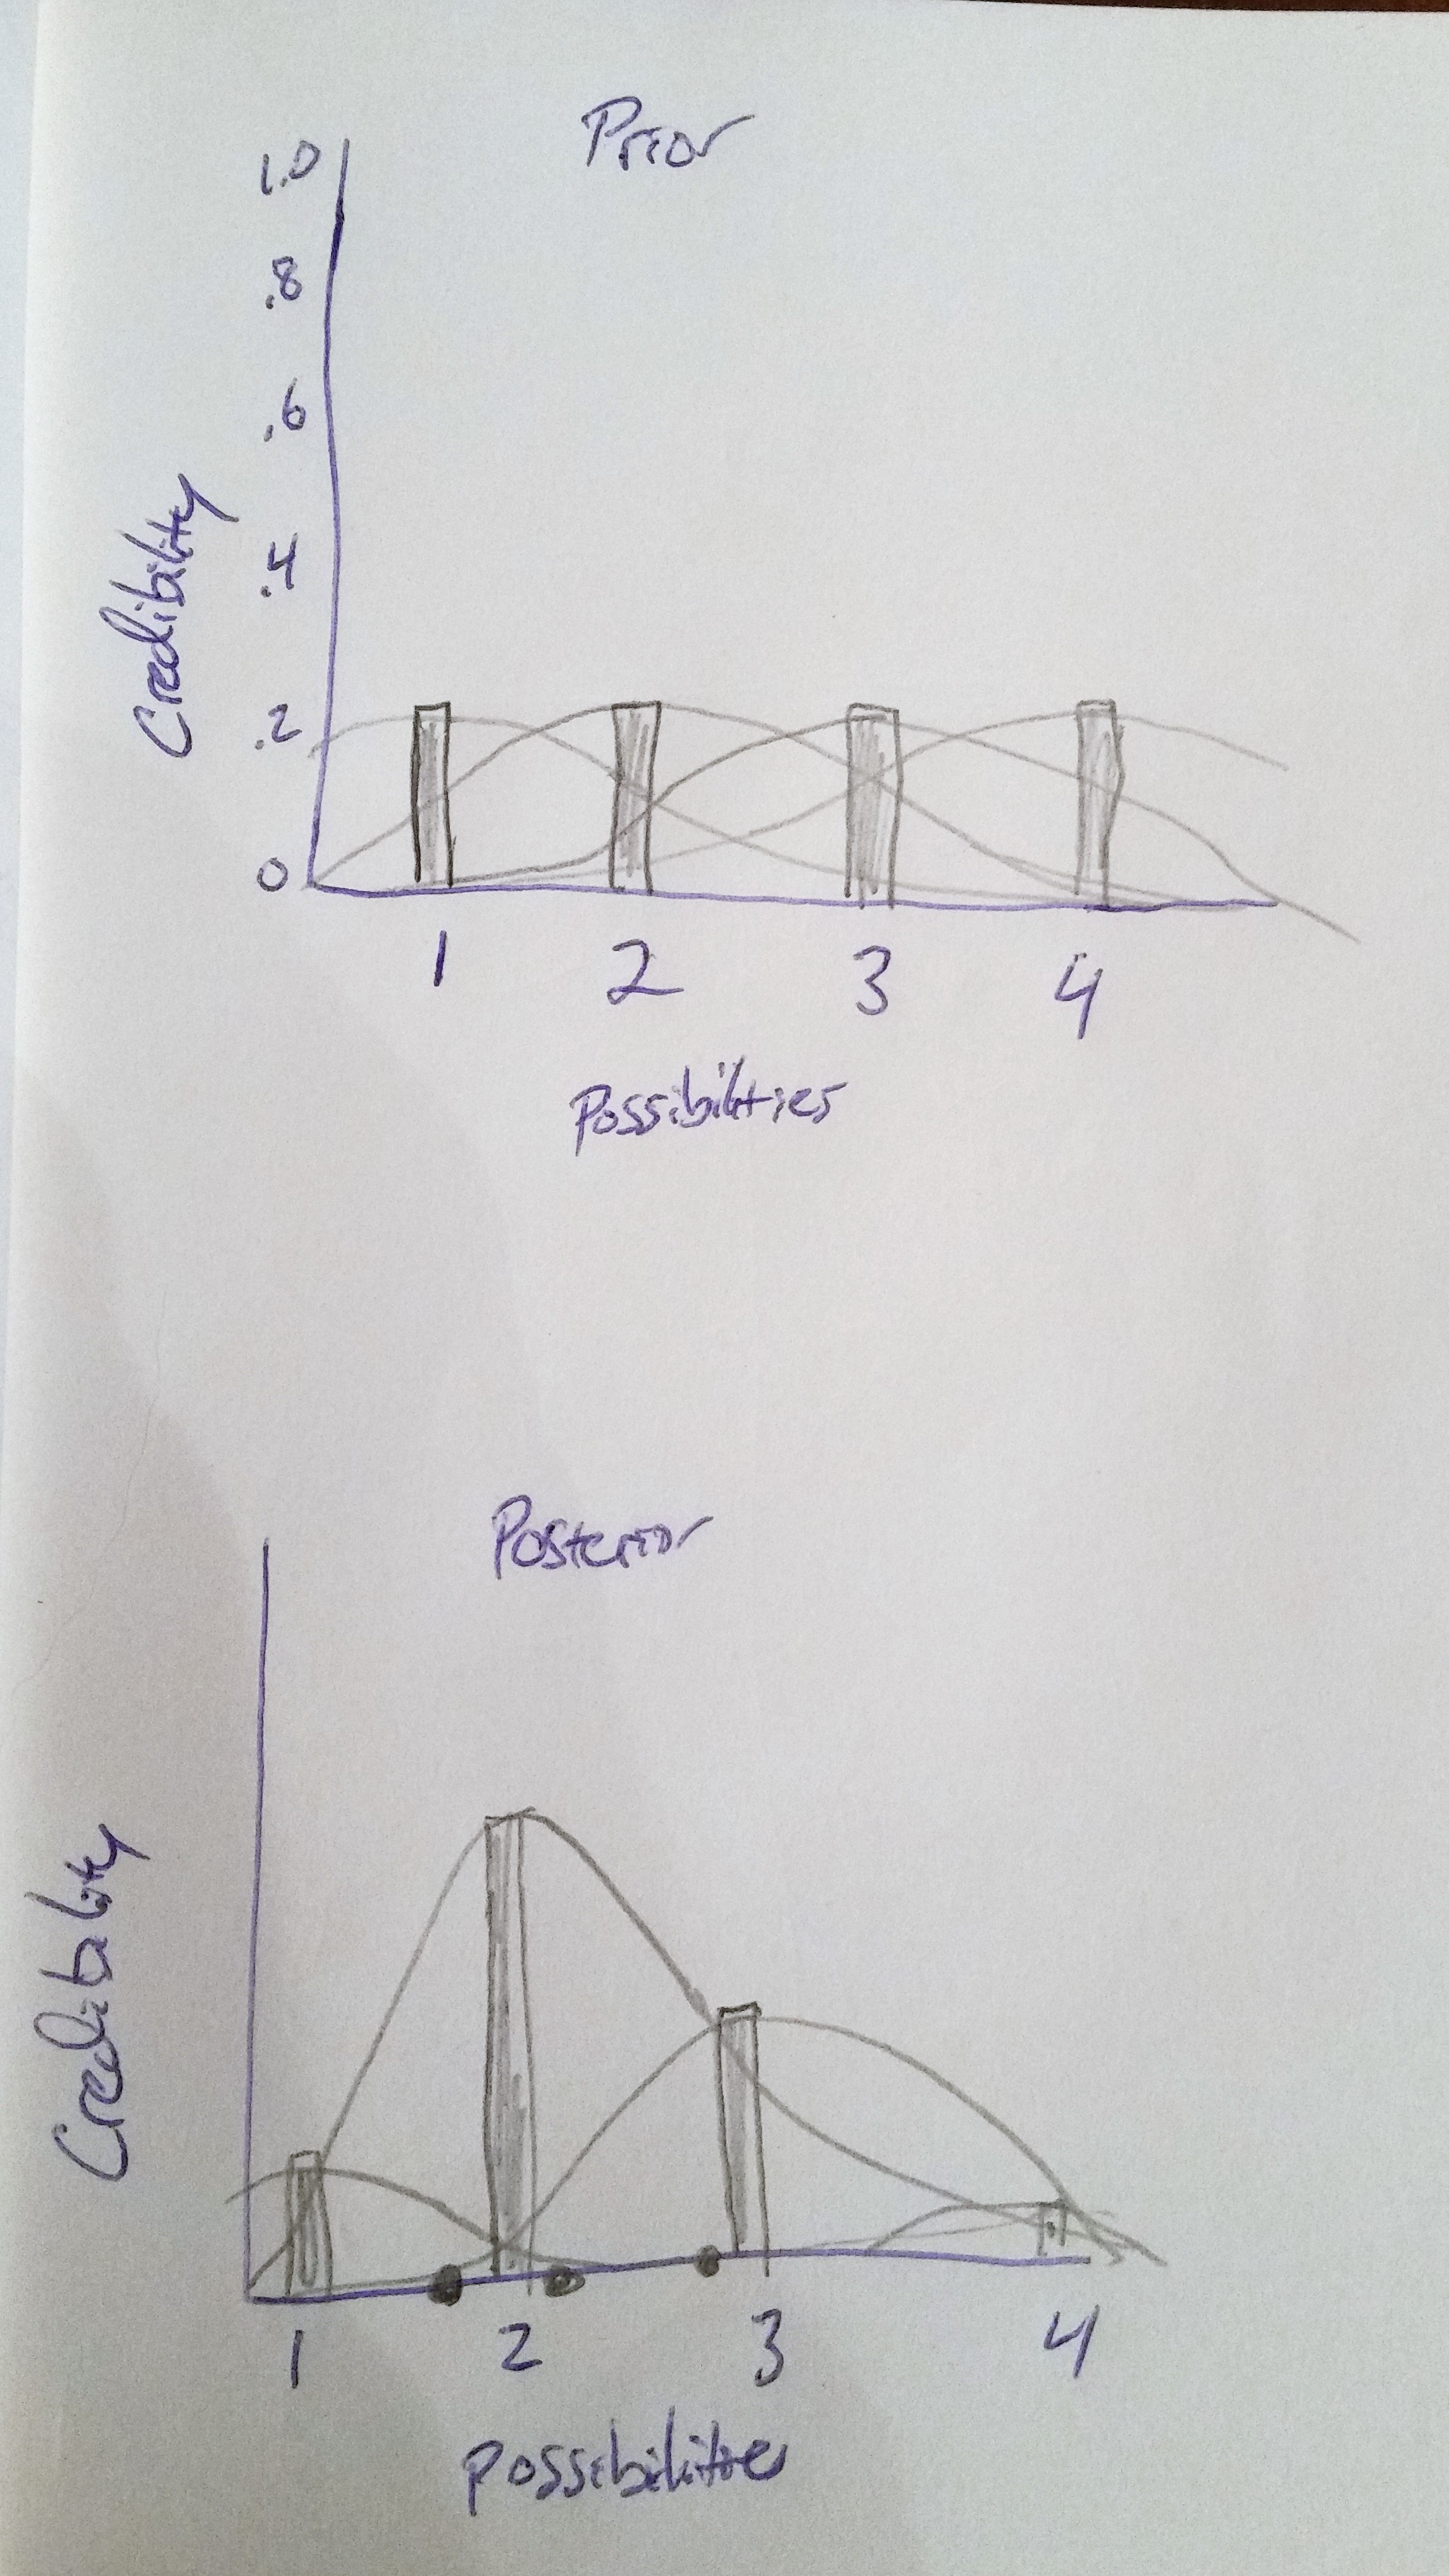 Prior
1.0
.8
.6
.4
.2
0
Credibility
1 2 3 4
Possibilities
Posterior
Credibility
1 2 3 4
possibilities